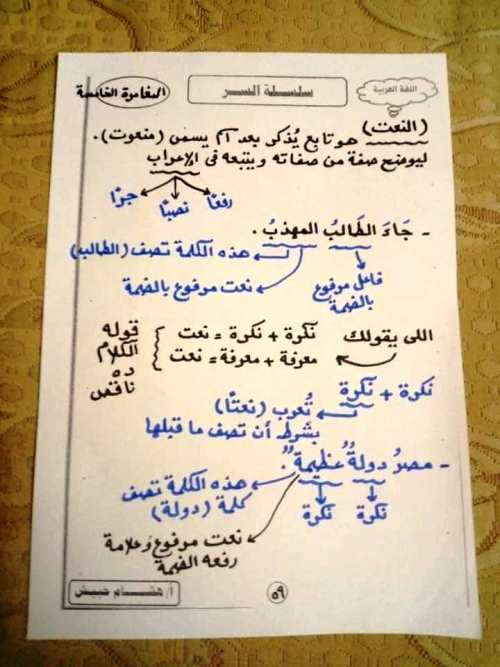 اللغة العربية
سلسلة السر
المغامرة الخامسة
(النعت) هو تابع يُذكر بعد اسم يسمى (منعوت).
ليوضح صفة من صفاته ويتبعه في الإعراب
رفعًا نصبًا جرًا
- جَاءَ الطَالبُ المهذبُ.
هذه الكلمة تصف (الطالب)
فاعل مرفوع بالضمة
نعت مرفوع بالضمة
اللى يقولك
نكرة + نكرة = نعت
معرفة + معرفة = نعت
قوله
الكلام
ده
ناقص
نكرة + نكرة
تُعرب (نعتًا)
بشرط أن تصف ما قبلها
- مصرُ دولةٌ عظيمةٌ.
نكرة نكرة
هذه الكلمة تصف
كلمة (دولة)
نعت مرفوع وعلامة
رفعه الضمة
أ/ هشام حبيش
٥٩